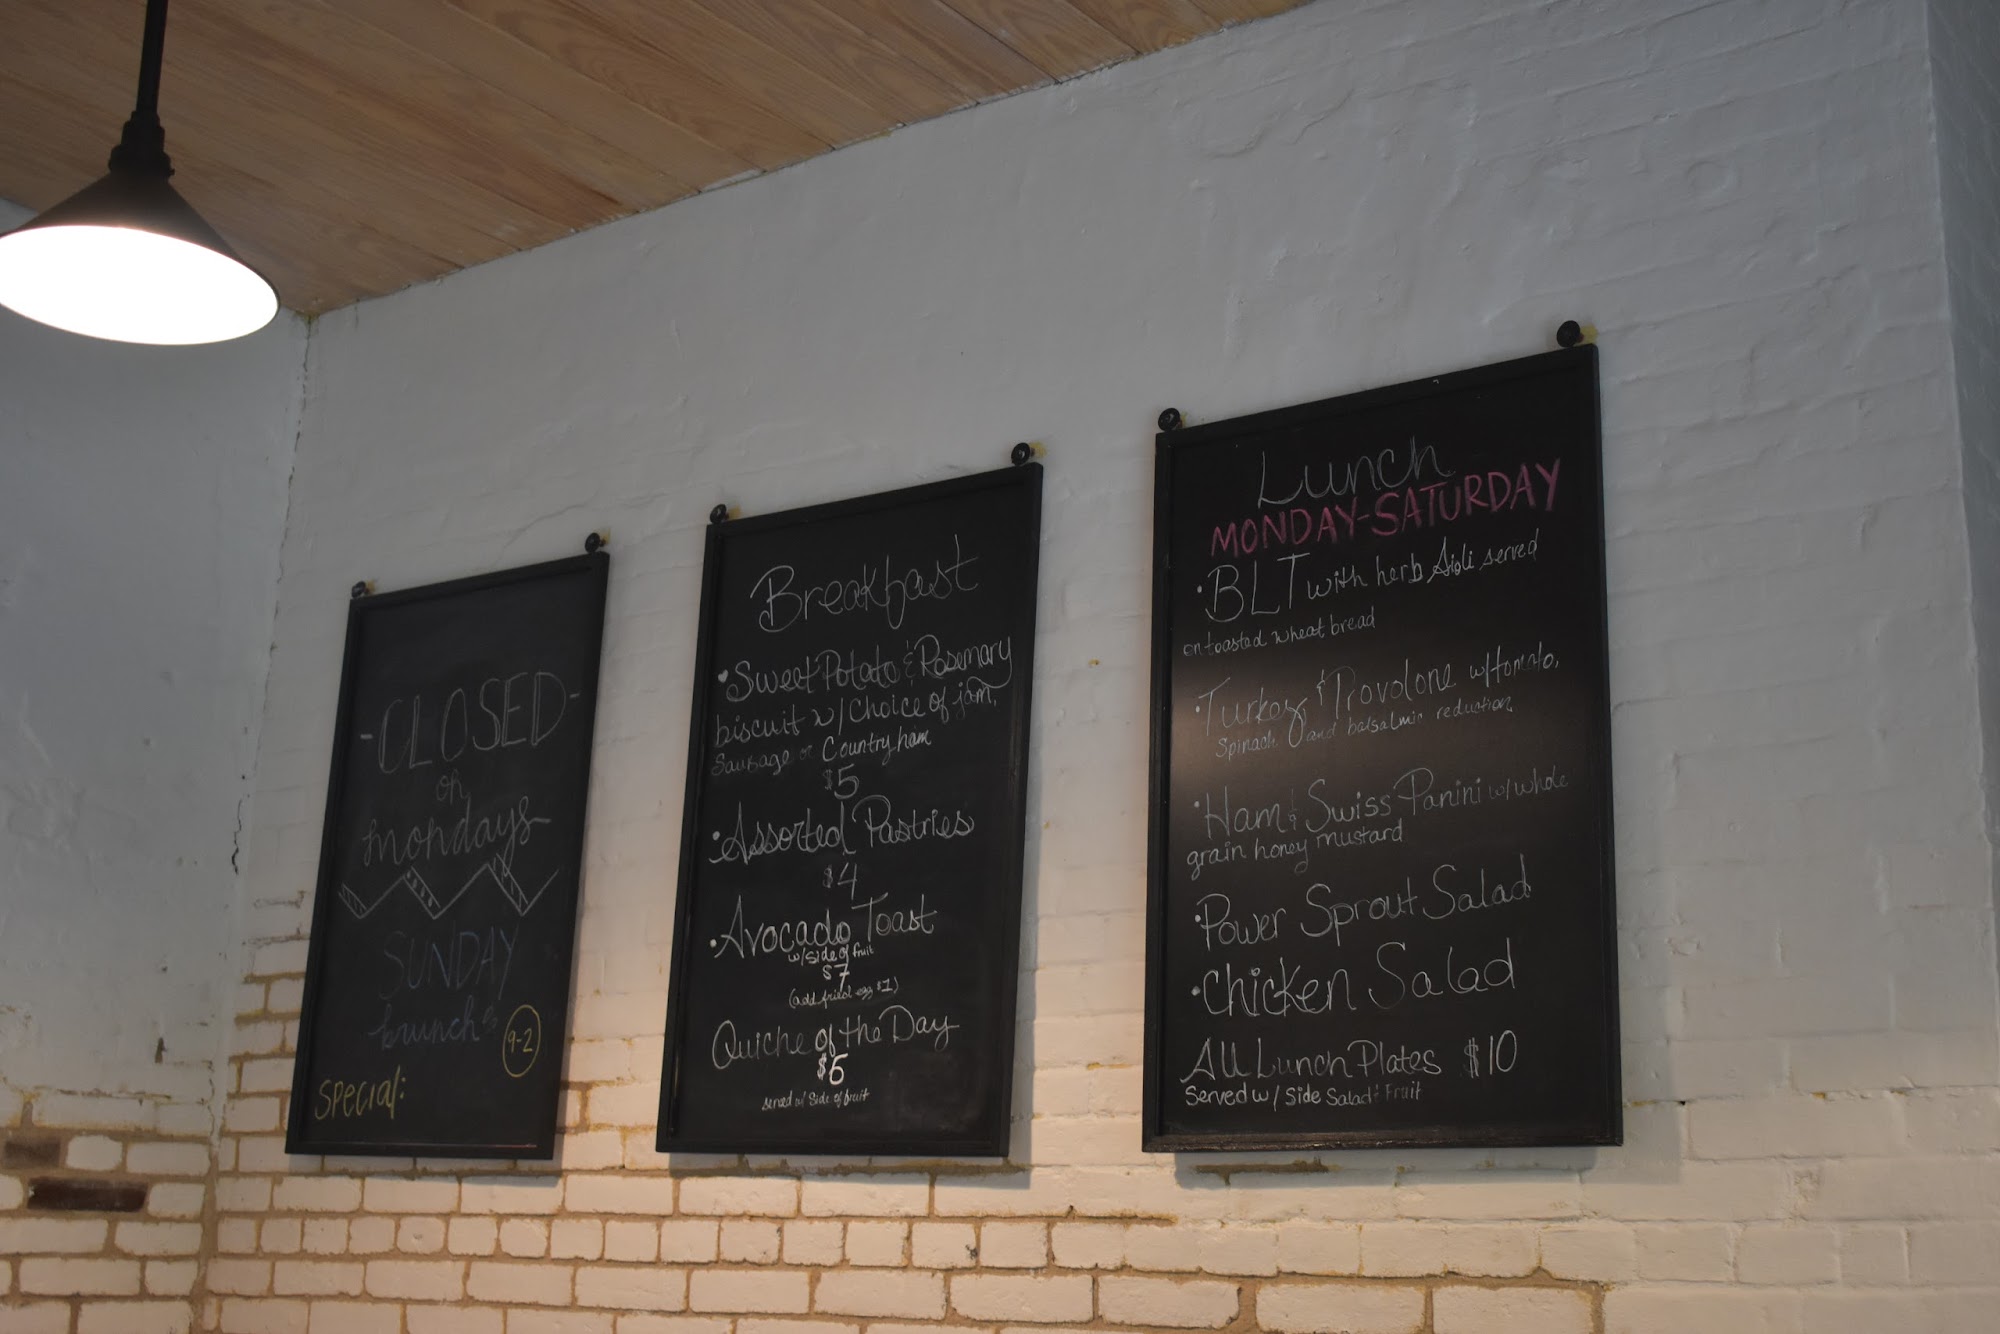 -CLOSED-
on
mondays
SUNDAY
brunch
9-2
special:
Breakfast
Sweet Potato & Rosemary
biscuit w/ choice of jam,
Sausage or Country ham
$5
• Assorted Pastries
$4
• Avocado Toast
w/side of fruit
$7
(add fried egg $1)
Quiche of the Day
served w/ side of fruit
Lunch
MONDAY-SATURDAY
• BLT with herb Aioli served
on toasted wheat bread
• Turkey & Provolone w/tomato,
Spinach and balsalmic reduction,
• Ham & Swiss Panini w/ whole
grain honey mustard
• Power Sprout Salad
• Chicken Salad
All Lunch Plates $10
Served w/ Side Salad & Fruit